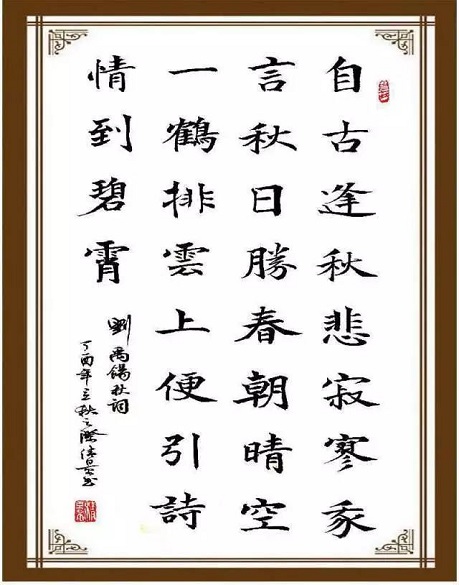 自古逢秋悲寂寥我
言秋日勝春朝晴空
一鶴排雲上便引詩
情到碧霄
劉禹錫秋詞
丁酉年立秋之際